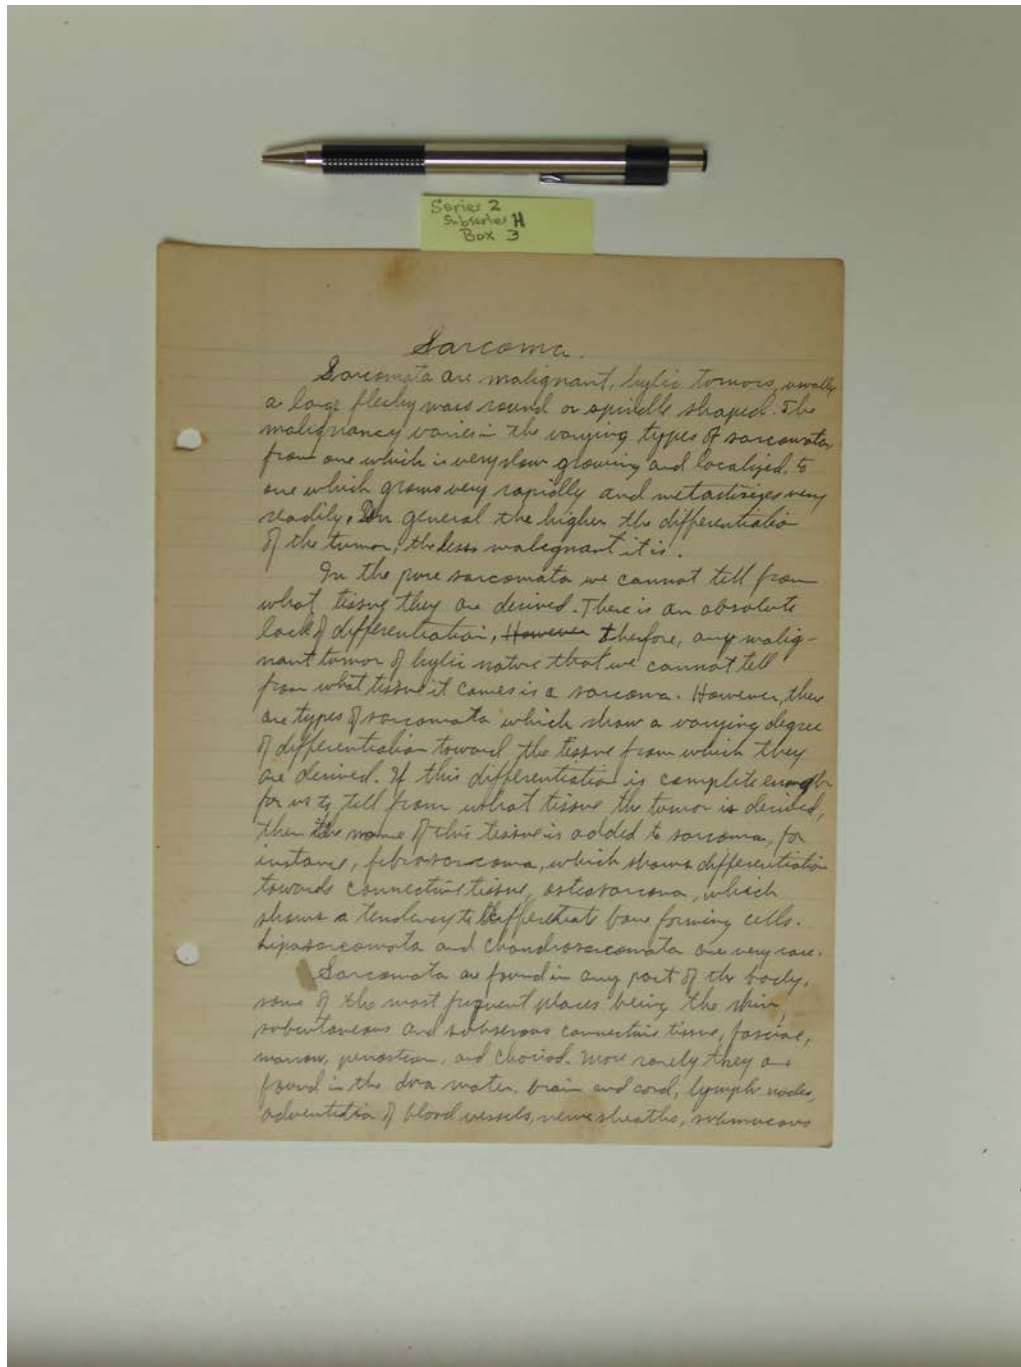 Series 2
Subseries H
Box 3
Sarcoma.
Sarcomata are malignant, hylic tumors, usually
a large fleshy mass round or spindle shaped. The
malignancy varies in the varying types of sarcomata
from one which is very slow growing and localized, to
one which grows very rapidly and metastisizes very
readily. In general the higher the differentiation
of the tumor, the less malignant it is.
In the pure sarcomata we cannot tell from
what tissue they are derived. There is an absolute
lack of differentiation, However therfore, any malig-
nant tumor of hylic nature that we cannot tell
from what tissue it comes is a sarcoma. However, there
are types of sarcomata which show a varying degree
of differentiation toward the tissue from which they
are derived. If this differentiation is complete enough
for us to tell from what tissue the tumor is derived,
then the name of this tissue is added to sarcoma, for
instance, fibrosarcoma, which shows differentiation
towards connective tissue, osteosarcoma, which
shows a tendency to differentiate bone forming cells.
Liposarcomata and chondrosarcomata are very rare.
Sarcomata are found in any part of the body,
some of the most frequent places being the skin,
subcutaneous and subserous connective tissue, fasciae,
marrow, periosteum, and choriod. More rarely they are
found in the dura mater, brain and cord, lymph nodes,
adventitia of blood vessels, nerve sheaths, submucous